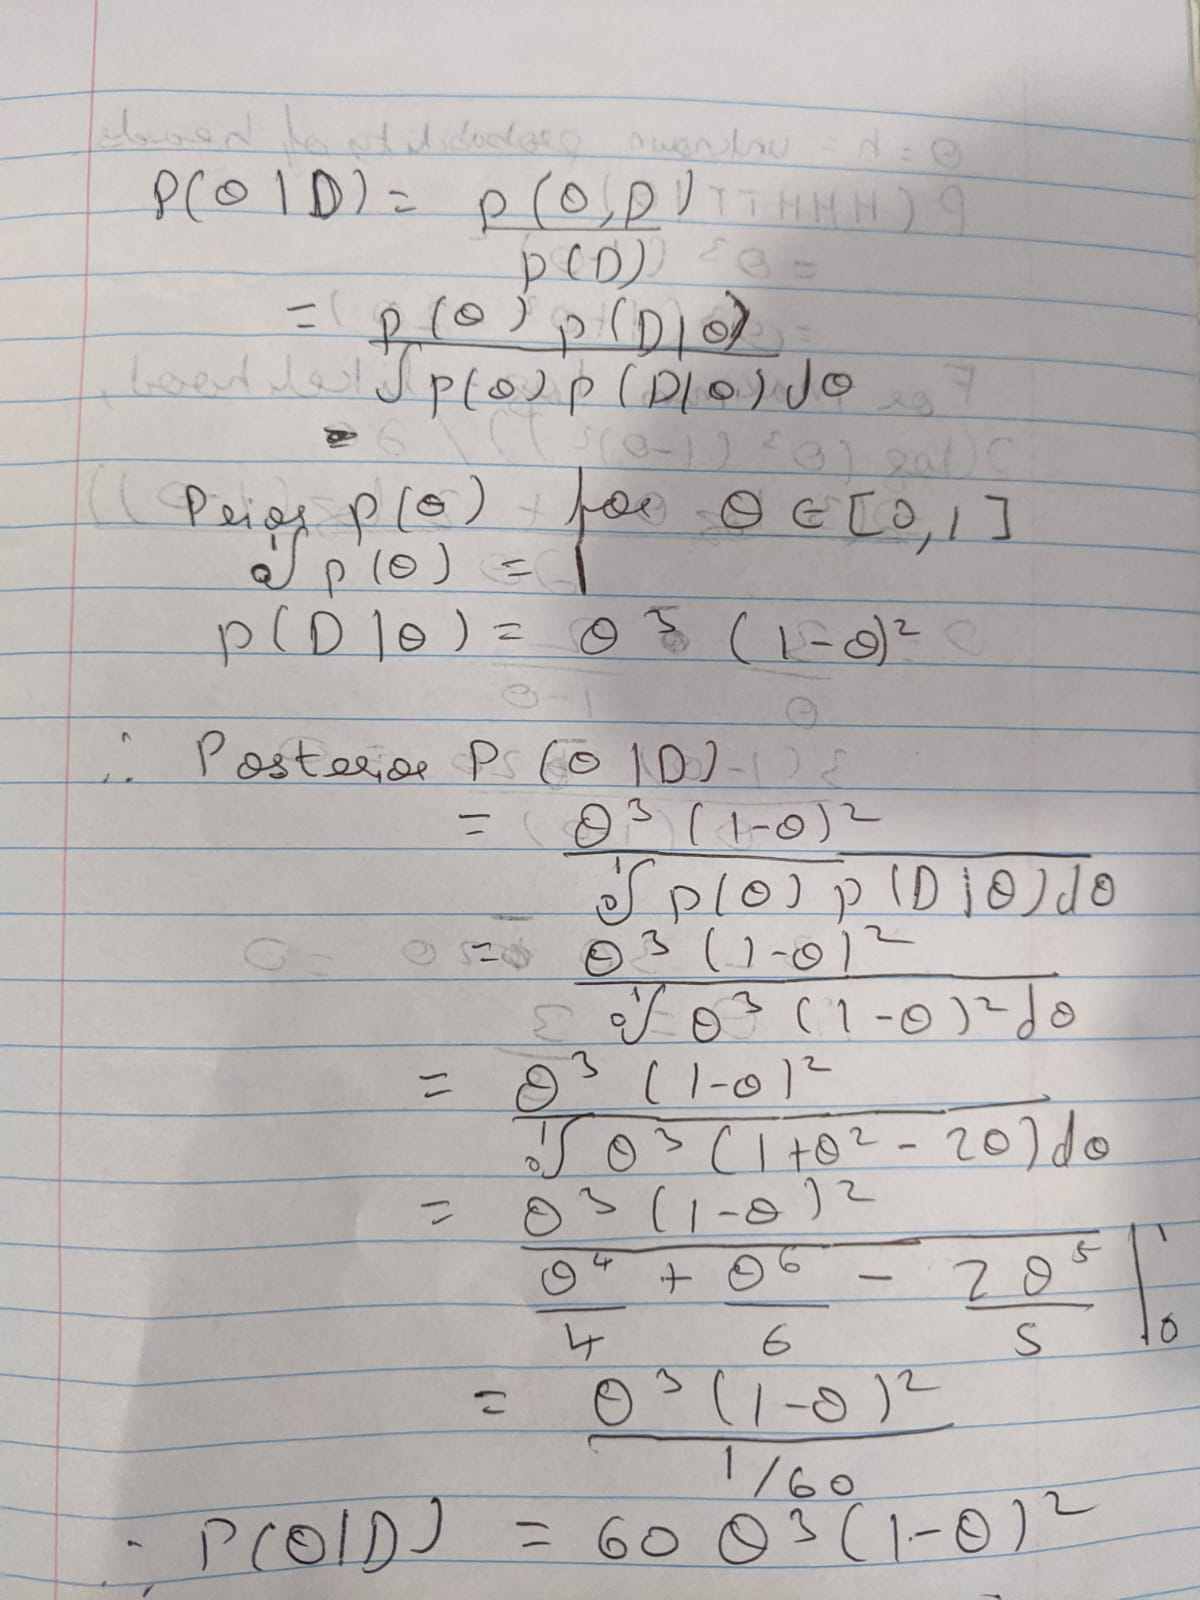 P(θ|D) = p(θ,D)
p(D)
= p(θ) p(D|θ)
∫p(θ) p(D|θ) dθ
=
Prior p(θ) for θ ∈ [0,1]
0∫1 p(θ) = 1
p(D|θ) = θ³ (1-θ)²
∴ Posterior P(θ|D)
= θ³ (1-θ)²
0∫1 p(θ) p(D|θ) dθ
= θ³ (1-θ)²
0∫1 θ³ (1-θ)² dθ
= θ³ (1-θ)²
0∫1 θ³ (1+θ² - 2θ) dθ
= θ³ (1-θ)²
θ⁴ + θ⁶ - 2θ⁵ |1
4 6 5 |0
= θ³ (1-θ)²
1/60
∴ P(θ|D) = 60 θ³ (1-θ)²